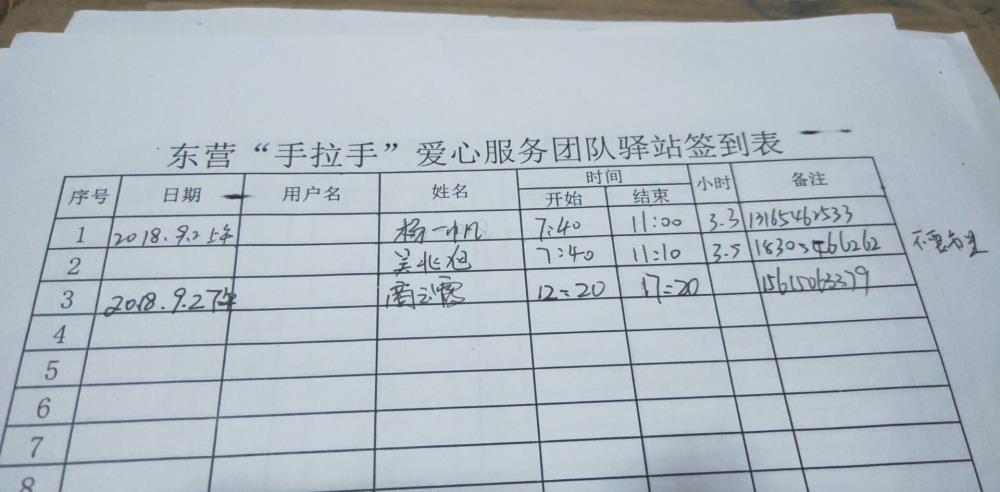 东营“手拉手”爱心服务团队驿站签到表
序号 日期 用户名 姓名 时间 小时 备注
开始 结束
1 2018.9.25年 杨一帆 7:40 11:00 3.3 13165462533
2 吴兆旭 7:40 11:10 3.5 18305466262
3 2018.9.27年 12:20 17:20 15615063379
4
5
6
7
8